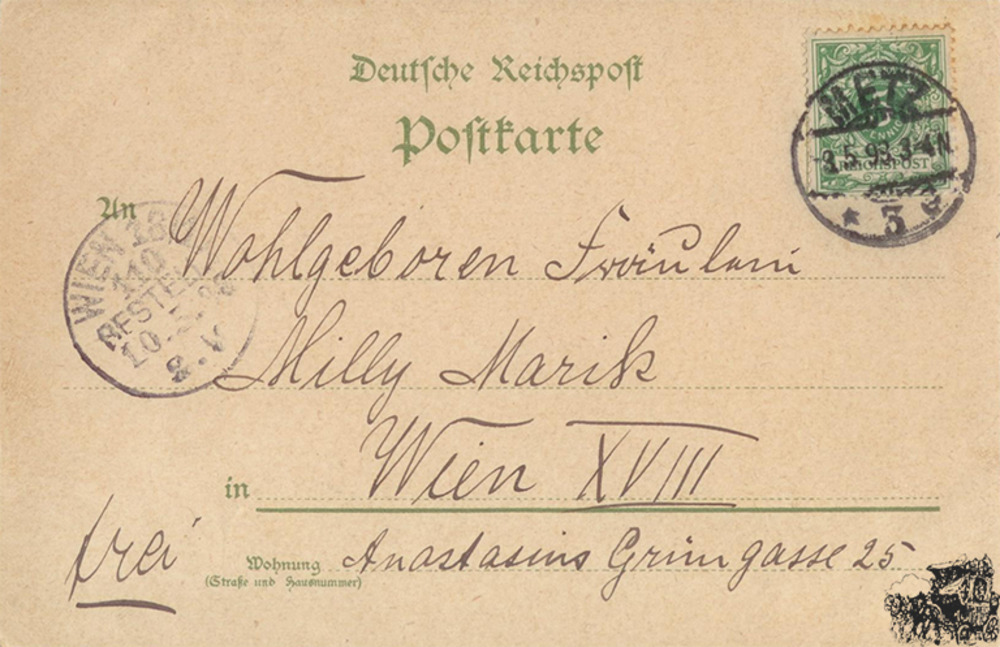 Deutsche Reichspost
Postkarte
METZ
-3.5.93.3-4N.
REICHSPOST
* 3 c
An Wohlgeboren Fräulein
WIEN
110
BESTELLT
10.
8.V
Milly Marik
in Wien XVIII
frei
Wohnung Anastasius Grüngasse 25.
(Straße und Hausnummer)